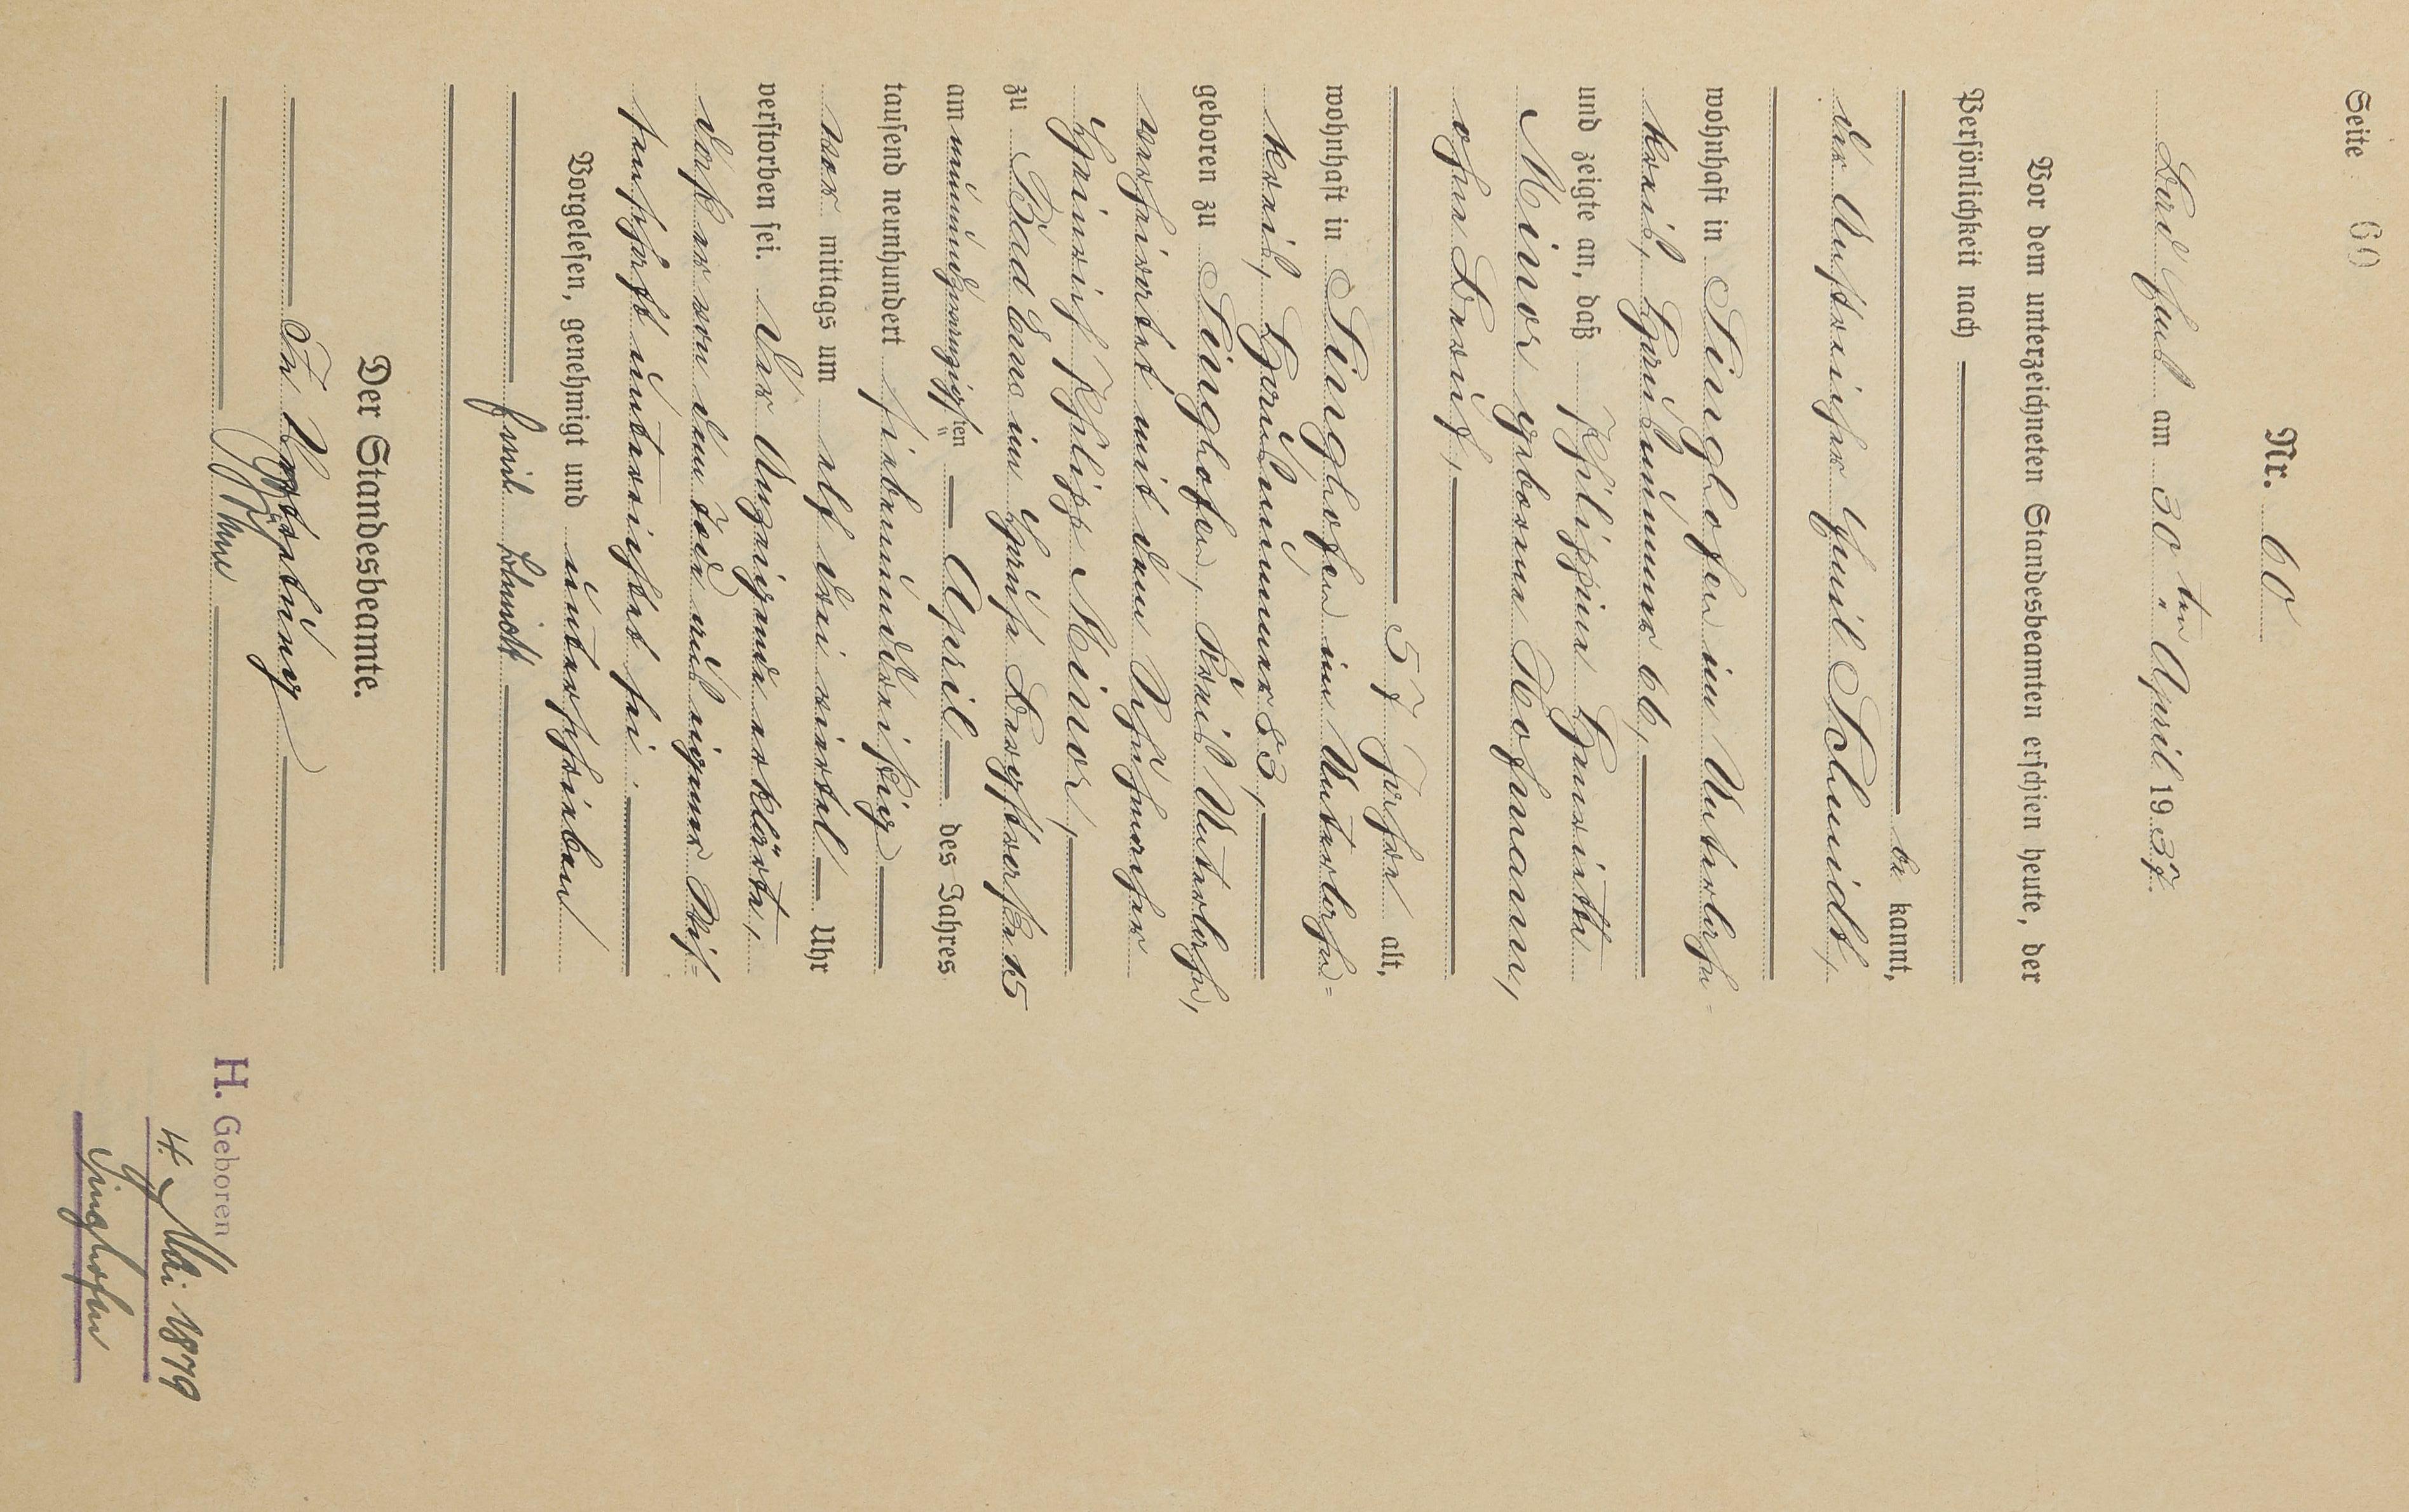 Seite 60
Nr. 60
Bad Ems am 30ten April 1937.
Vor dem unterzeichneten Standesbeamten erschien heute, der
Persönlichkeit nach
be kannt,
der Anstreicher Emil Schmidt,
wohnhaft in Singhofen im Unterlahn-
kreis, Hausnummer 66,
und zeigte an, daß Philippine Henriette
Minor geborene Hofmann,
ohne Beruf,
57 Jahre alt,
wohnhaft in Singhofen im Unterlahn-
kreis, Hausnummer 83,
geboren zu Singhofen, Kreis Unterlahn,
verheiratet mit dem Schuhmacher
Heinrich Philipp Minor,
zu Bad Ems im Hause Bergstraße 15
am neunundzwanzigsten April des Jahres
tausend neunhundert siebenunddreißig
vor mittags um elf drei viertel Uhr
verstorben sei. Der Anzeigende erklärte,
daß er von dem Tode aus eigener Wis-
senschaft unterrichtet sei.
Vorgelesen, genehmigt und unterschrieben
Emil Schmidt
Der Standesbeamte.
In Vertretung
H. Geboren
4. Mai 1879
Singhofen